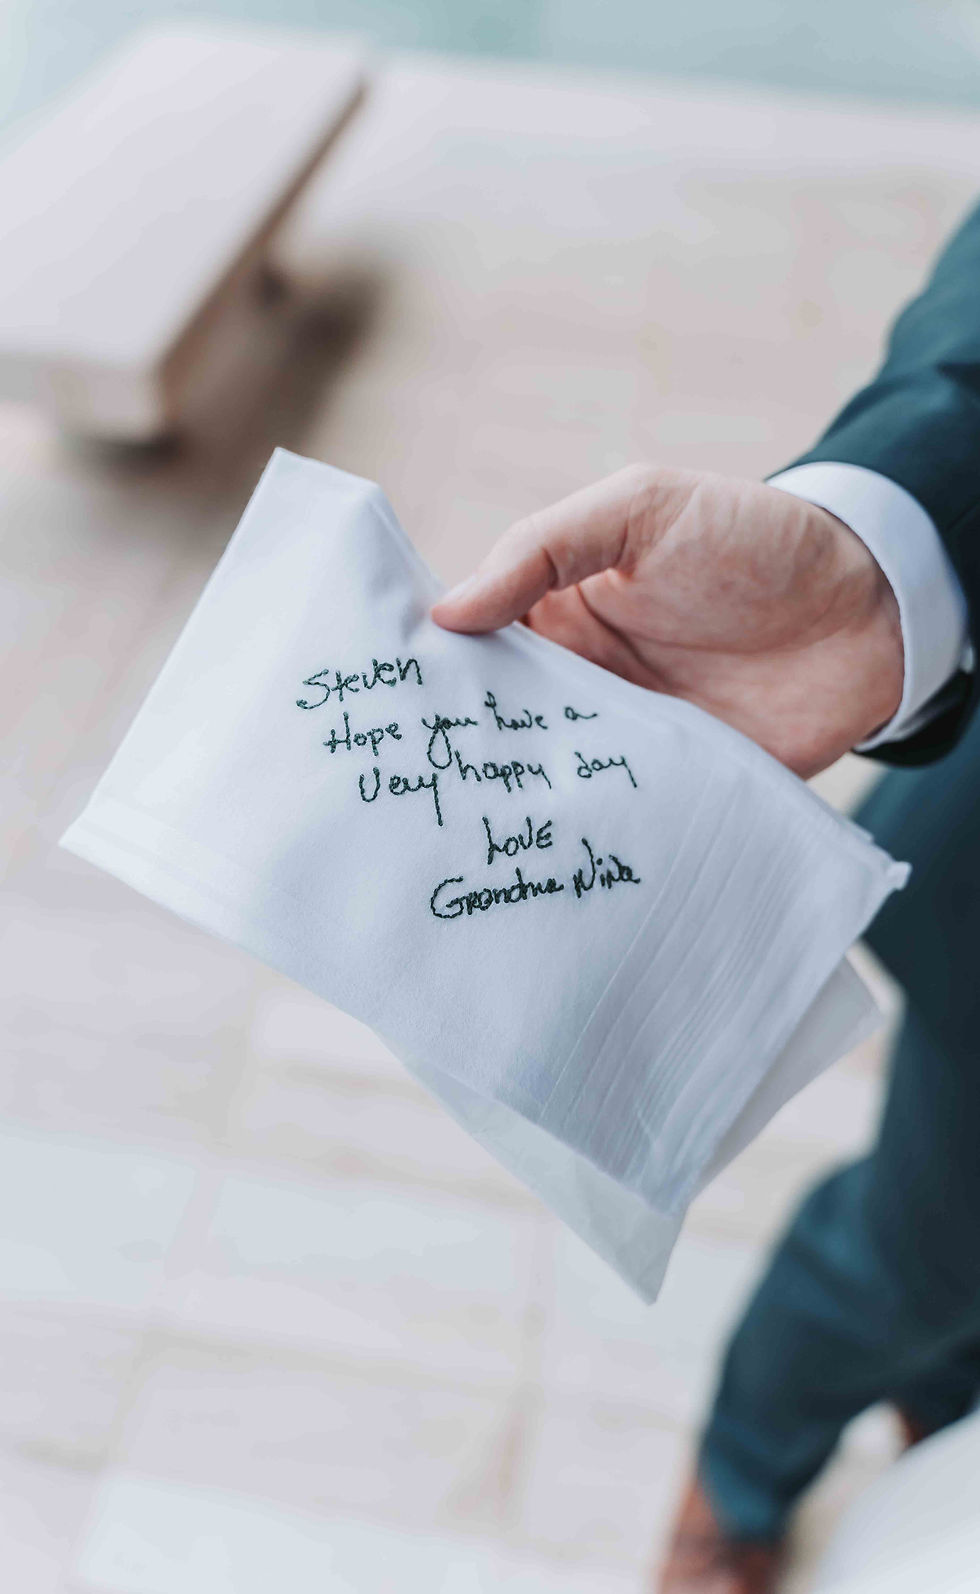 Steven
Hope you have a
very happy day
Love
Grandma Nina